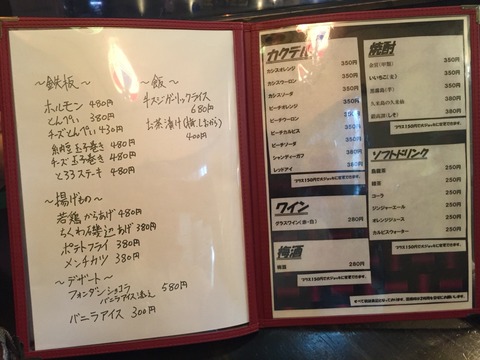 〜鉄板〜
ホルモン 480円
とんぺい 380円
チーズとんぺい 430円
納豆玉子巻き 480円
チーズ玉子巻き 480円
とろろステーキ 480円
〜揚げもの〜
若鶏からあげ 480円
ちくわ磯辺あげ 380円
ポテトフライ 380円
メンチカツ 380円
〜デザート〜
フォンダンショコラ
バニラアイス添え 580円
バニラアイス 300円
〜飯〜
牛スジガーリックライス
680円
お茶漬け(梅、しおから)
400円
カクテル
350円
カシスオレンジ 350円
カシスウーロン 350円
カシスソーダ 350円
ピーチオレンジ 350円
ピーチウーロン 350円
ピーチカルピス 350円
ピーチソーダ 350円
シャンディーガフ 350円
レッドアイ 350円
ワイン
グラスワイン(赤・白) 280円
梅酒
280円
焼酎
350円
いいちこ(麦) 350円
黒霧島(芋) 350円
380円
350円
プラス150円で大ジョッキに変更できます。
ソフトドリンク
烏龍茶 250円
緑茶 250円
コーラ 250円
ジンジャーエール 250円
オレンジジュース 250円
カルピスウォーター 250円
プラス150円で大ジョッキに変更できます。